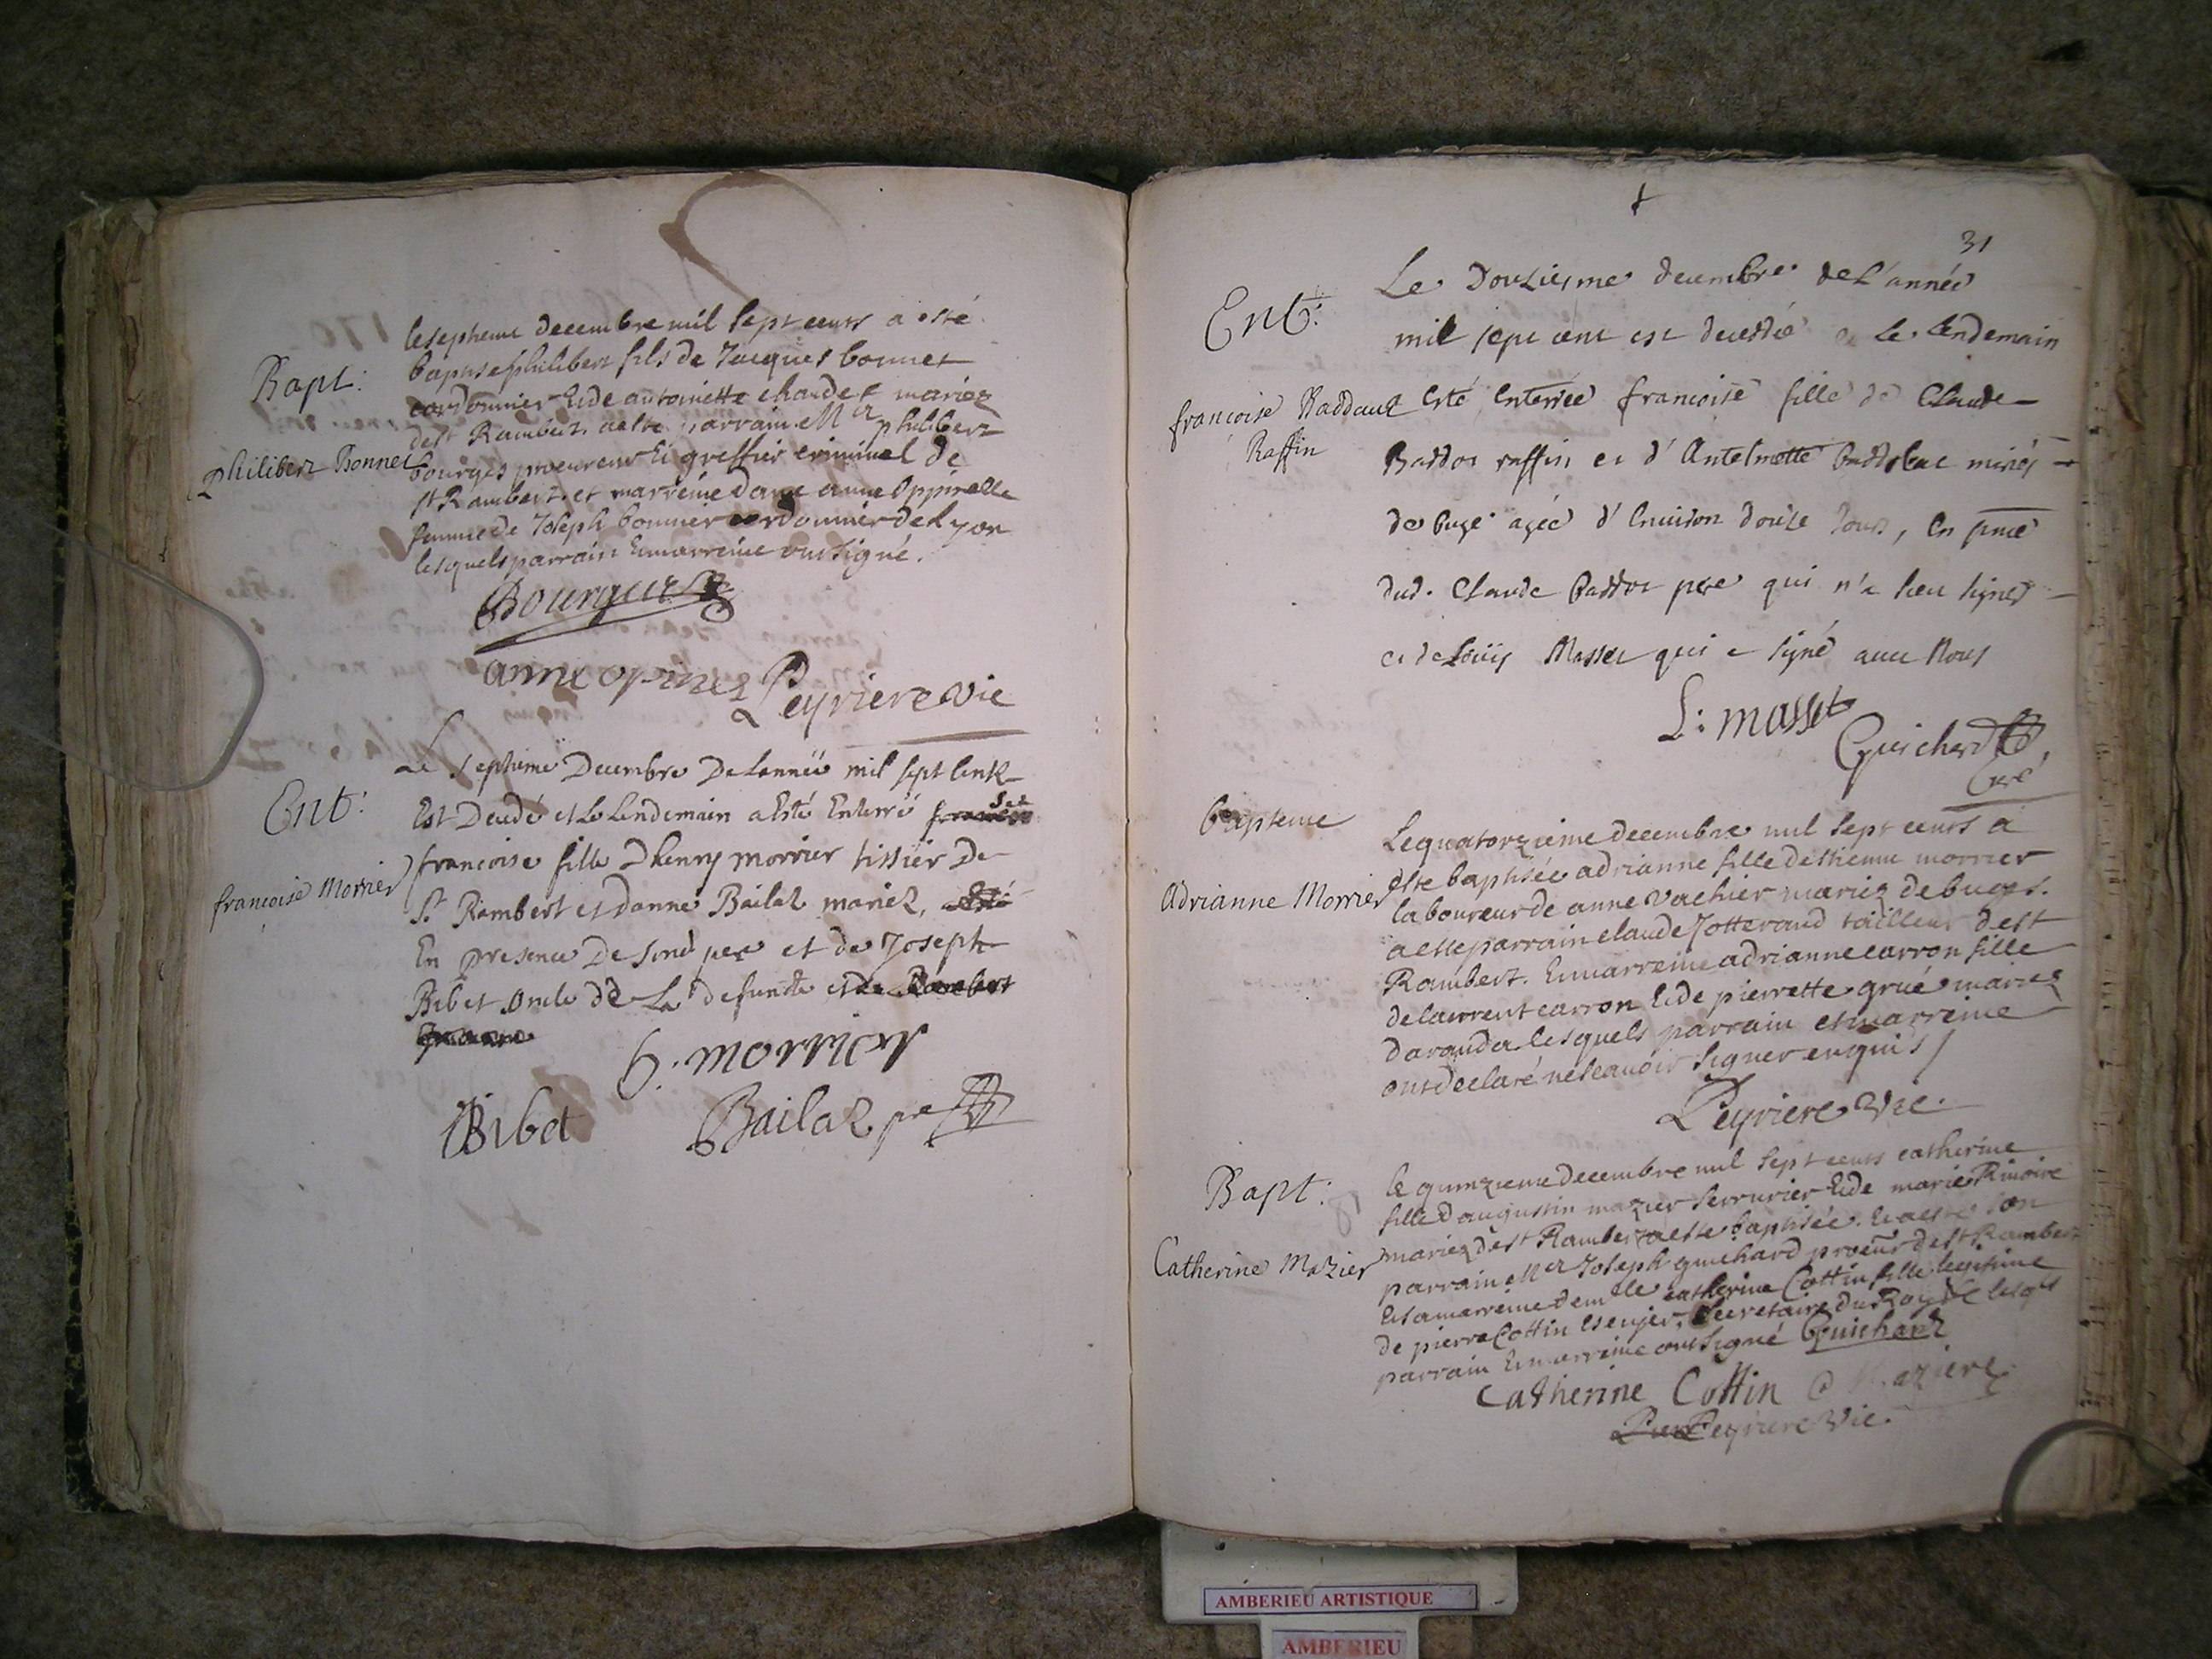 Bapt:
philibert Bonnet
le septieme decembre mil sept cents a esté
baptisé philibert fils de Jacques bonnet
cordonnier et de antoinette chaudet mariez
de st Rambert. a esté parrain Mer philibert
bourges procureur et greffier criminel de
st Rambert. et marreine dame anne
femme de Joseph bonnier cordonnier de Lyon
lesquels parrain et marreine ont signé.
Bourges
anne
Peyriere vic
Ent:
françoise Morrier
Le septieme Decembre De Lannéé mil sept Cent
Est Decedé et Le Lendemain a Esté Enterré
francoise fille Dhenry morrier tissier De
St. Rambert et Danne Bailat mariez,
En presence De sond pere et de Joseph
Bibet oncle de La defuncte et de Rambert
h. morrier
Bibet
Bailat pre
31
Ent:
françoise Baddout
Raffin
Le Douziesme decembre de L'année
mil sept cent est decedée et Le Lendemain
esté enterrée francoise fille de Claude
Baddot raffin et d'Antelmette mariés
de buge agée d'Environ douze Jours, en pnce
dud. Claude Baddot pere qui n'a sceu signer
et de Loüis Masset qui a signé avec Nous
L: masset
Guichard
Curé
bapteme
Adrianne Morrier
Le quatorzieme decembre mil sept cents a
este baptisée adrianne fille destienne morrier
laboureur de anne vachier mariez de buges.
a esté parrain claude Jotterand tailleur de st
Rambert. Et marreine adrianne carron fille
de laurent carron et de pierrette grué mariez
daranda lesquels parrain et marreine
ont declaré ne scauoir signer enquis
Peyriere vic.
Bapt:
Catherine Mazier
le quinzieme decembre mil sept cents catherine
fille daugustin mazier serrurier et de marie Rinoire
mariez de st Rambert a este baptisée. Et a esté son
parrain Mer Joseph guichard procur de st Rambert
Et sa marreine demlle catherine Cottin fille legitime
de pierre Cottin escuyer, Secretaire du Roy Et lesqls
parrain Et marreine ont signé Guichard
Catherine Cottin
Peyriere vic.
AMBERIEU ARTISTIQUE
AMBERIEU